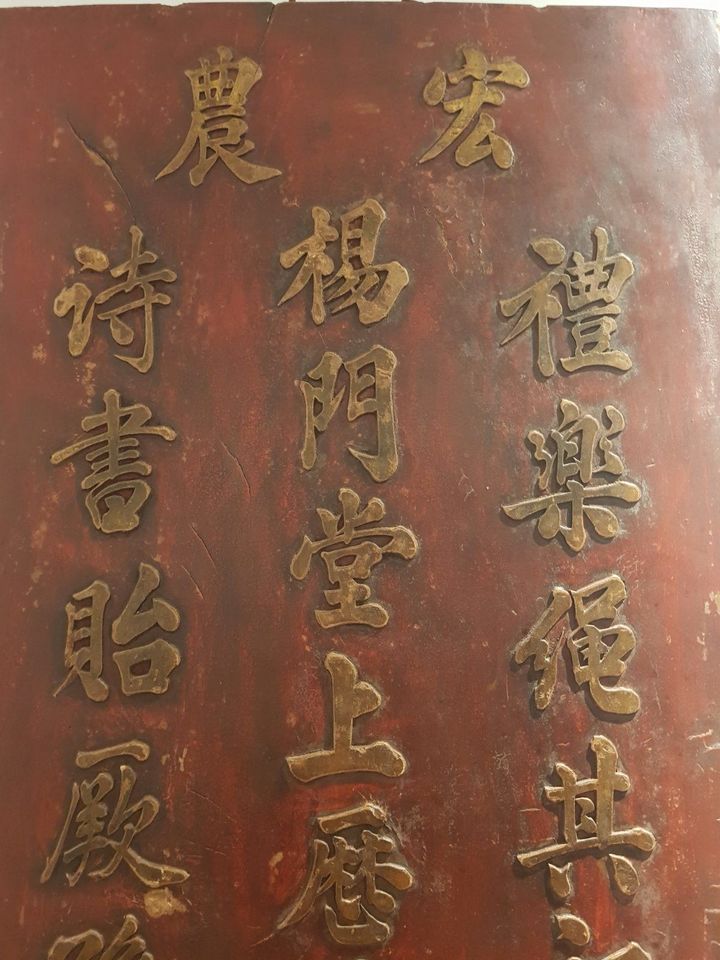 宏農
禮樂绳其
楊門堂上歷
诗書貽厥